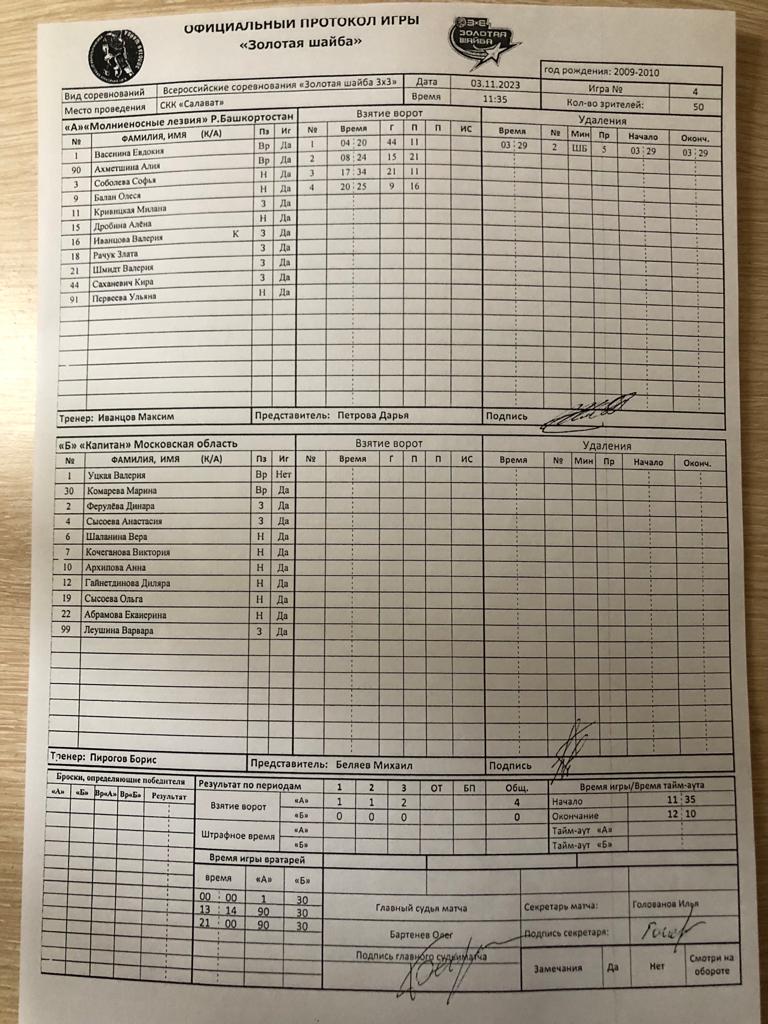 ОФИЦИАЛЬНЫЙ ПРОТОКОЛ ИГРЫ
«Золотая шайба»
3×3
ЗОЛОТАЯ
ШАЙБА
год рождения: 2009-2010
Вид соревнований Всероссийские соревнования «Золотая шайба 3х3» Дата 03.11.2023 Игра № 4
Место проведения СКК «Салават» Время 11:35 Кол-во зрителей: 50
«А»«Молниеносные лезвия» Р.Башкортостан Взятие ворот Удаления
№ ФАМИЛИЯ, ИМЯ (К/А) Пз Иг № Время Г П П ИС Время № Мин Пр Начало Оконч.
1 Васенина Евдокия Вр Да 1 04 20 44 11 03 29 2 ШБ 5 03 29 03 29
90 Ахметшина Алия Вр Да 2 08 24 15 21
3 Соболева Софья Н Да 3 17 34 21 11
9 Балан Олеся Н Да 4 20 25 9 16
11 Кривицкая Милана З Да
15 Дробина Алёна Н Да
16 Иванцова Валерия К З Да
18 Рачук Злата З Да
21 Шмидт Валерия З Да
44 Саханевич Кира З Да
91 Первеева Ульяна Н Да
Тренер: Иванцов Максим Представитель: Петрова Дарья Подпись
«Б» «Капитан» Московская область Взятие ворот Удаления
№ ФАМИЛИЯ, ИМЯ (К/А) Пз Иг № Время Г П П ИС Время № Мин Пр Начало Оконч.
1 Уцкая Валерия Вр Нет
30 Комарева Марина Вр Да
2 Ферулёва Динара З Да
4 Сысоева Анастасия З Да
6 Шаланина Вера Н Да
7 Кочеганова Виктория Н Да
10 Архипова Анна Н Да
12 Гайнетдинова Диляра Н Да
19 Сысоева Ольга Н Да
22 Абрамова Екаиерина Н Да
99 Леушина Варвара З Да
Тренер: Пирогов Борис Представитель: Беляев Михаил Подпись
Броски, определяющие победителя Результат по периодам 1 2 3 ОТ БП Общ. Время игры/Время тайм-аута
«А» «Б» Вр«А» Вр«Б» Результат
Взятие ворот «А» 1 1 2 4 Начало 11 35
«Б» 0 0 0 0 Окончание 12 10
Штрафное время «А» Тайм-аут «А»
«Б» Тайм-аут «Б»
Время игры вратарей
время «А» «Б»
00 00 1 30 Главный судья матча Секретарь матча: Голованов Илья
13 14 90 30
21 00 90 30 Бартенев Олег Подпись секретаря:
Подпись главного судьи матча
Замечания Да Нет Смотри на обороте